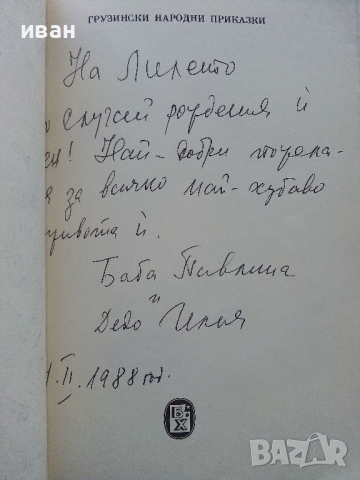 ГРУЗИНСКИ НАРОДНИ ПРИКАЗКИ
иван
На Лилето
случай рождения ѝ
ен! Най-добри пожела-
я за всичко най-хубаво
живота ѝ.
Баба Павлина
и
Дедо Илия
1.II.1988 год.
БХ
BAZAR